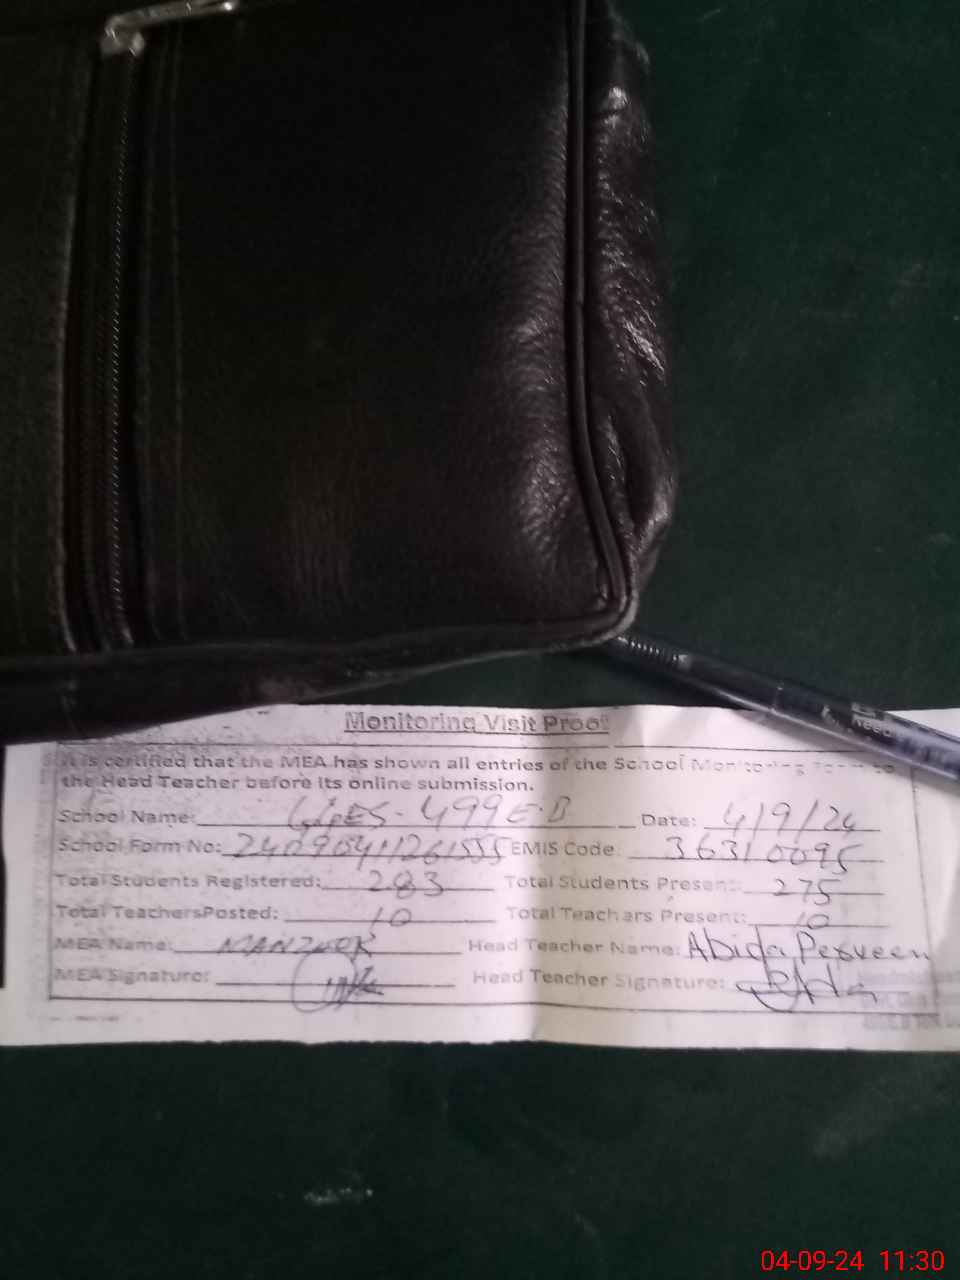 Monitoring Visit Proof
It is certified that the MEA has shown all entries of the School Monitoring Form to
the Head Teacher before its online submission.
School Name: GGES-499 E.B Date: 4/9/24
School Form No: EMIS Code: 36310095
Total Students Registered: 283 Total Students Present: 275
Total TeachersPosted: 10 Total Teachers Present: 10
MEA Name: MANZOOR Head Teacher Name: Abida Perveen
MEA Signature: Head Teacher Signature:
04-09-24 11:30